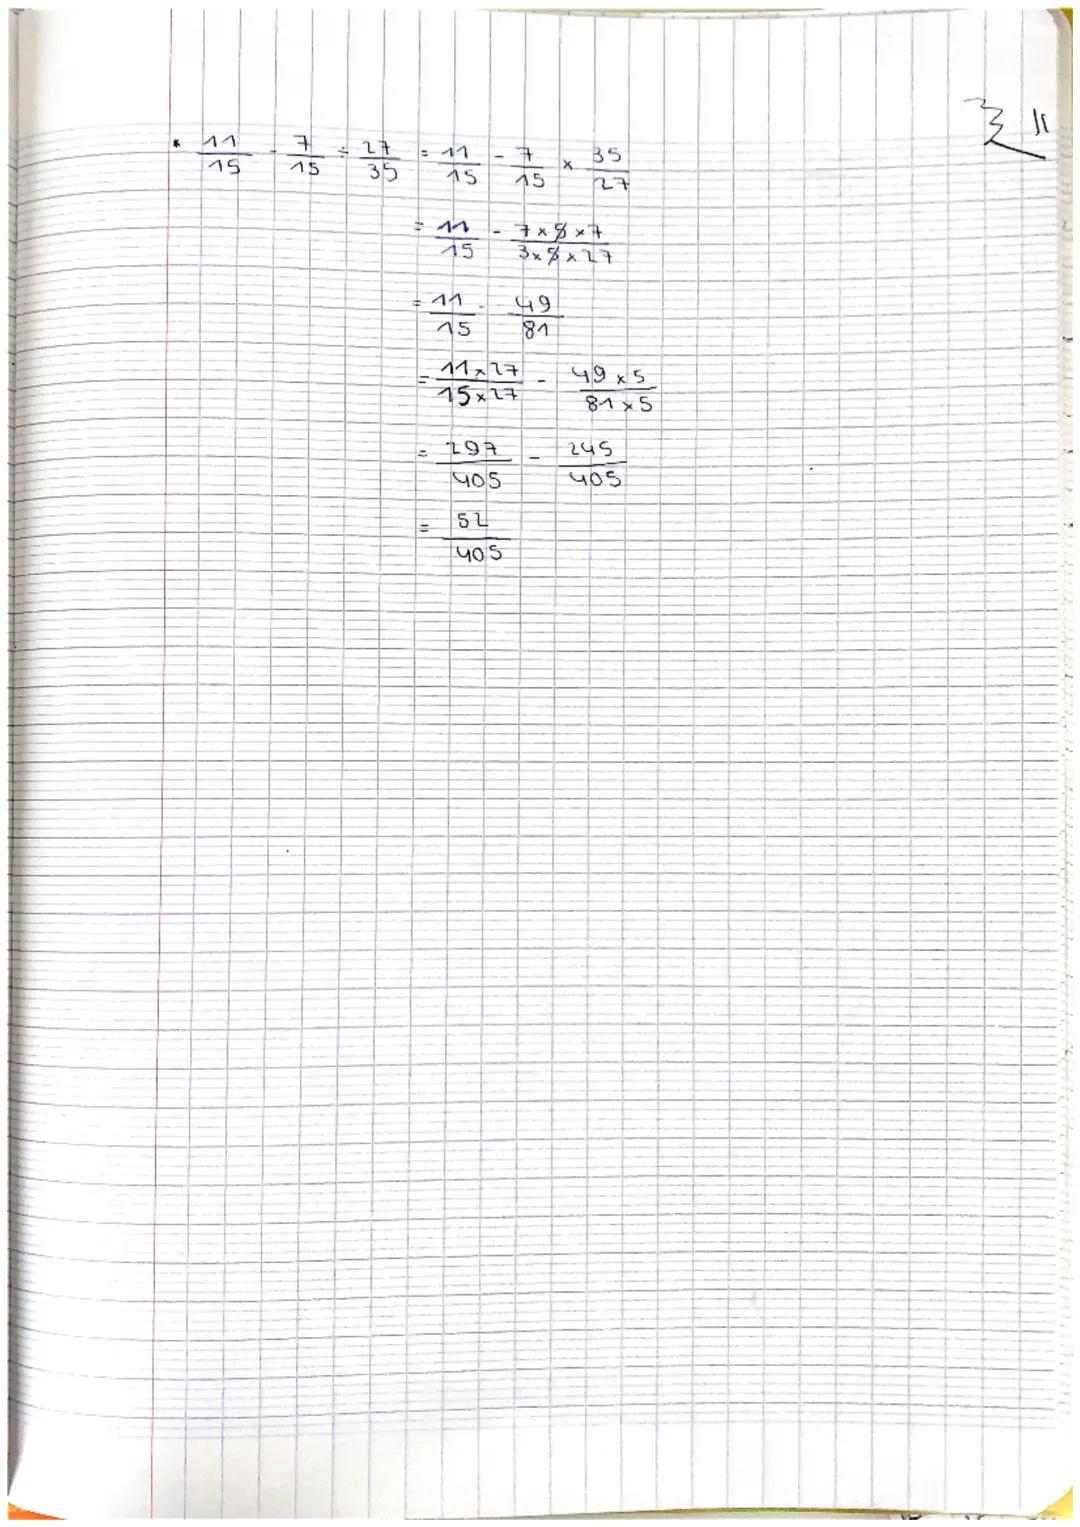 * 11/15 - 7/15 ÷ 27/35 = 11/15 - 7/15 × 35/27
= 11/15 - 7×5×7/3×5×27
= 11/15 - 49/81
= 11×27/15×27 - 49×5/81×5
= 297/405 - 245/405
= 52/405